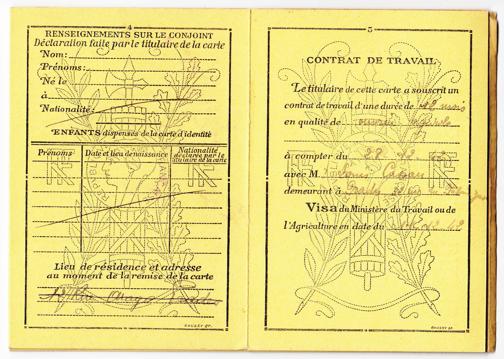 4
RENSEIGNEMENTS SUR LE CONJOINT
Déclaration faite par le titulaire de la carte
Nom:
Prénoms:
Né le
à
Nationalité:
ENFANTS dispensés de la carte d'identité
Prénoms
Date et lieu de naissance
Nationalité
déclarée par le
titulaire de la carte
Lieu de résidence et adresse
au moment de la remise de la carte
Rue Arago
5
CONTRAT DE TRAVAIL
Le titulaire de cette carte a souscrit un
contrat de travail d'une durée de mois
en qualité de ouvrier agricole
à compter du 28
avec M. Louis
demeurant à
Visa du Ministère du Travail ou de
l'Agriculture en date du